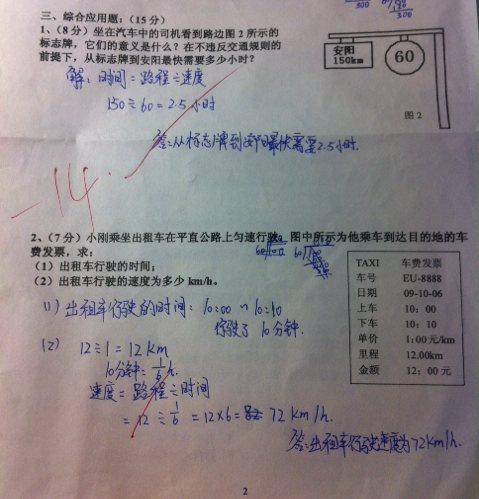 300
300
三、综合应用题：（15分）
1、（8分）坐在汽车中的司机看到路边图2所示的
标志牌，它们的意义是什么？在不违反交通规则的
前提下，从标志牌到安阳最快需要多少小时？
安阳
150km
60
图2
解：时间=路程÷速度
150÷60=2.5小时
答：从标志牌到安阳最快需要2.5小时.
-14.
2、（7分）小刚乘坐出租车在平直公路上匀速行驶，图中所示为他乘车到达目的地的车
费发票，求：
（1）出租车行驶的时间；
（2）出租车行驶的速度为多少km/h。
TAXI 车费发票
车号 EU-8888
日期 09-10-06
上车 10：00
下车 10：10
单价 1:00元/km
里程 12.00km
金额 12：00元
(1) 出租车行驶的时间：10:00~10:10
行驶了10分钟.
(2) 12÷1=12km
10分钟=1/6h.
速度=路程÷时间
=12÷1/6=12×6=72km/h.
答：出租车行驶速度为72km/h.
2